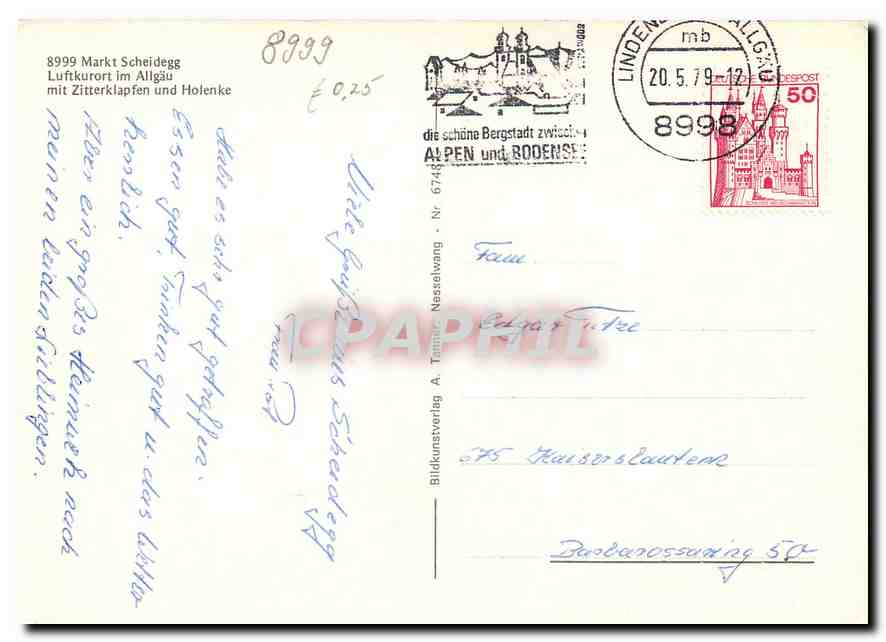 8999 Markt Scheidegg
Luftkurort im Allgäu
mit Zitterklapfen und Holenke
8999
€ 0,25
die schöne Bergstadt zwisch
ALPEN und BODENSEE
LINDENB ALLGÄU
mb
20.5.79-12
8998
DEUTSCHE BUNDESPOST
50
Habe es sehr gut getroffen.
Essen gut, Trinken gut u. das Wetter
herrlich.
Aber ein großes Heimweh nach
meinen beiden Lieblingen.
Viele Grüße aus Scheidegg
Bildkunstverlag A. Tanner, Nesselwang - Nr 6748
Fam.
Edgar
675 Kaiserslautern
Barbarossaring 50
CPAPHIL